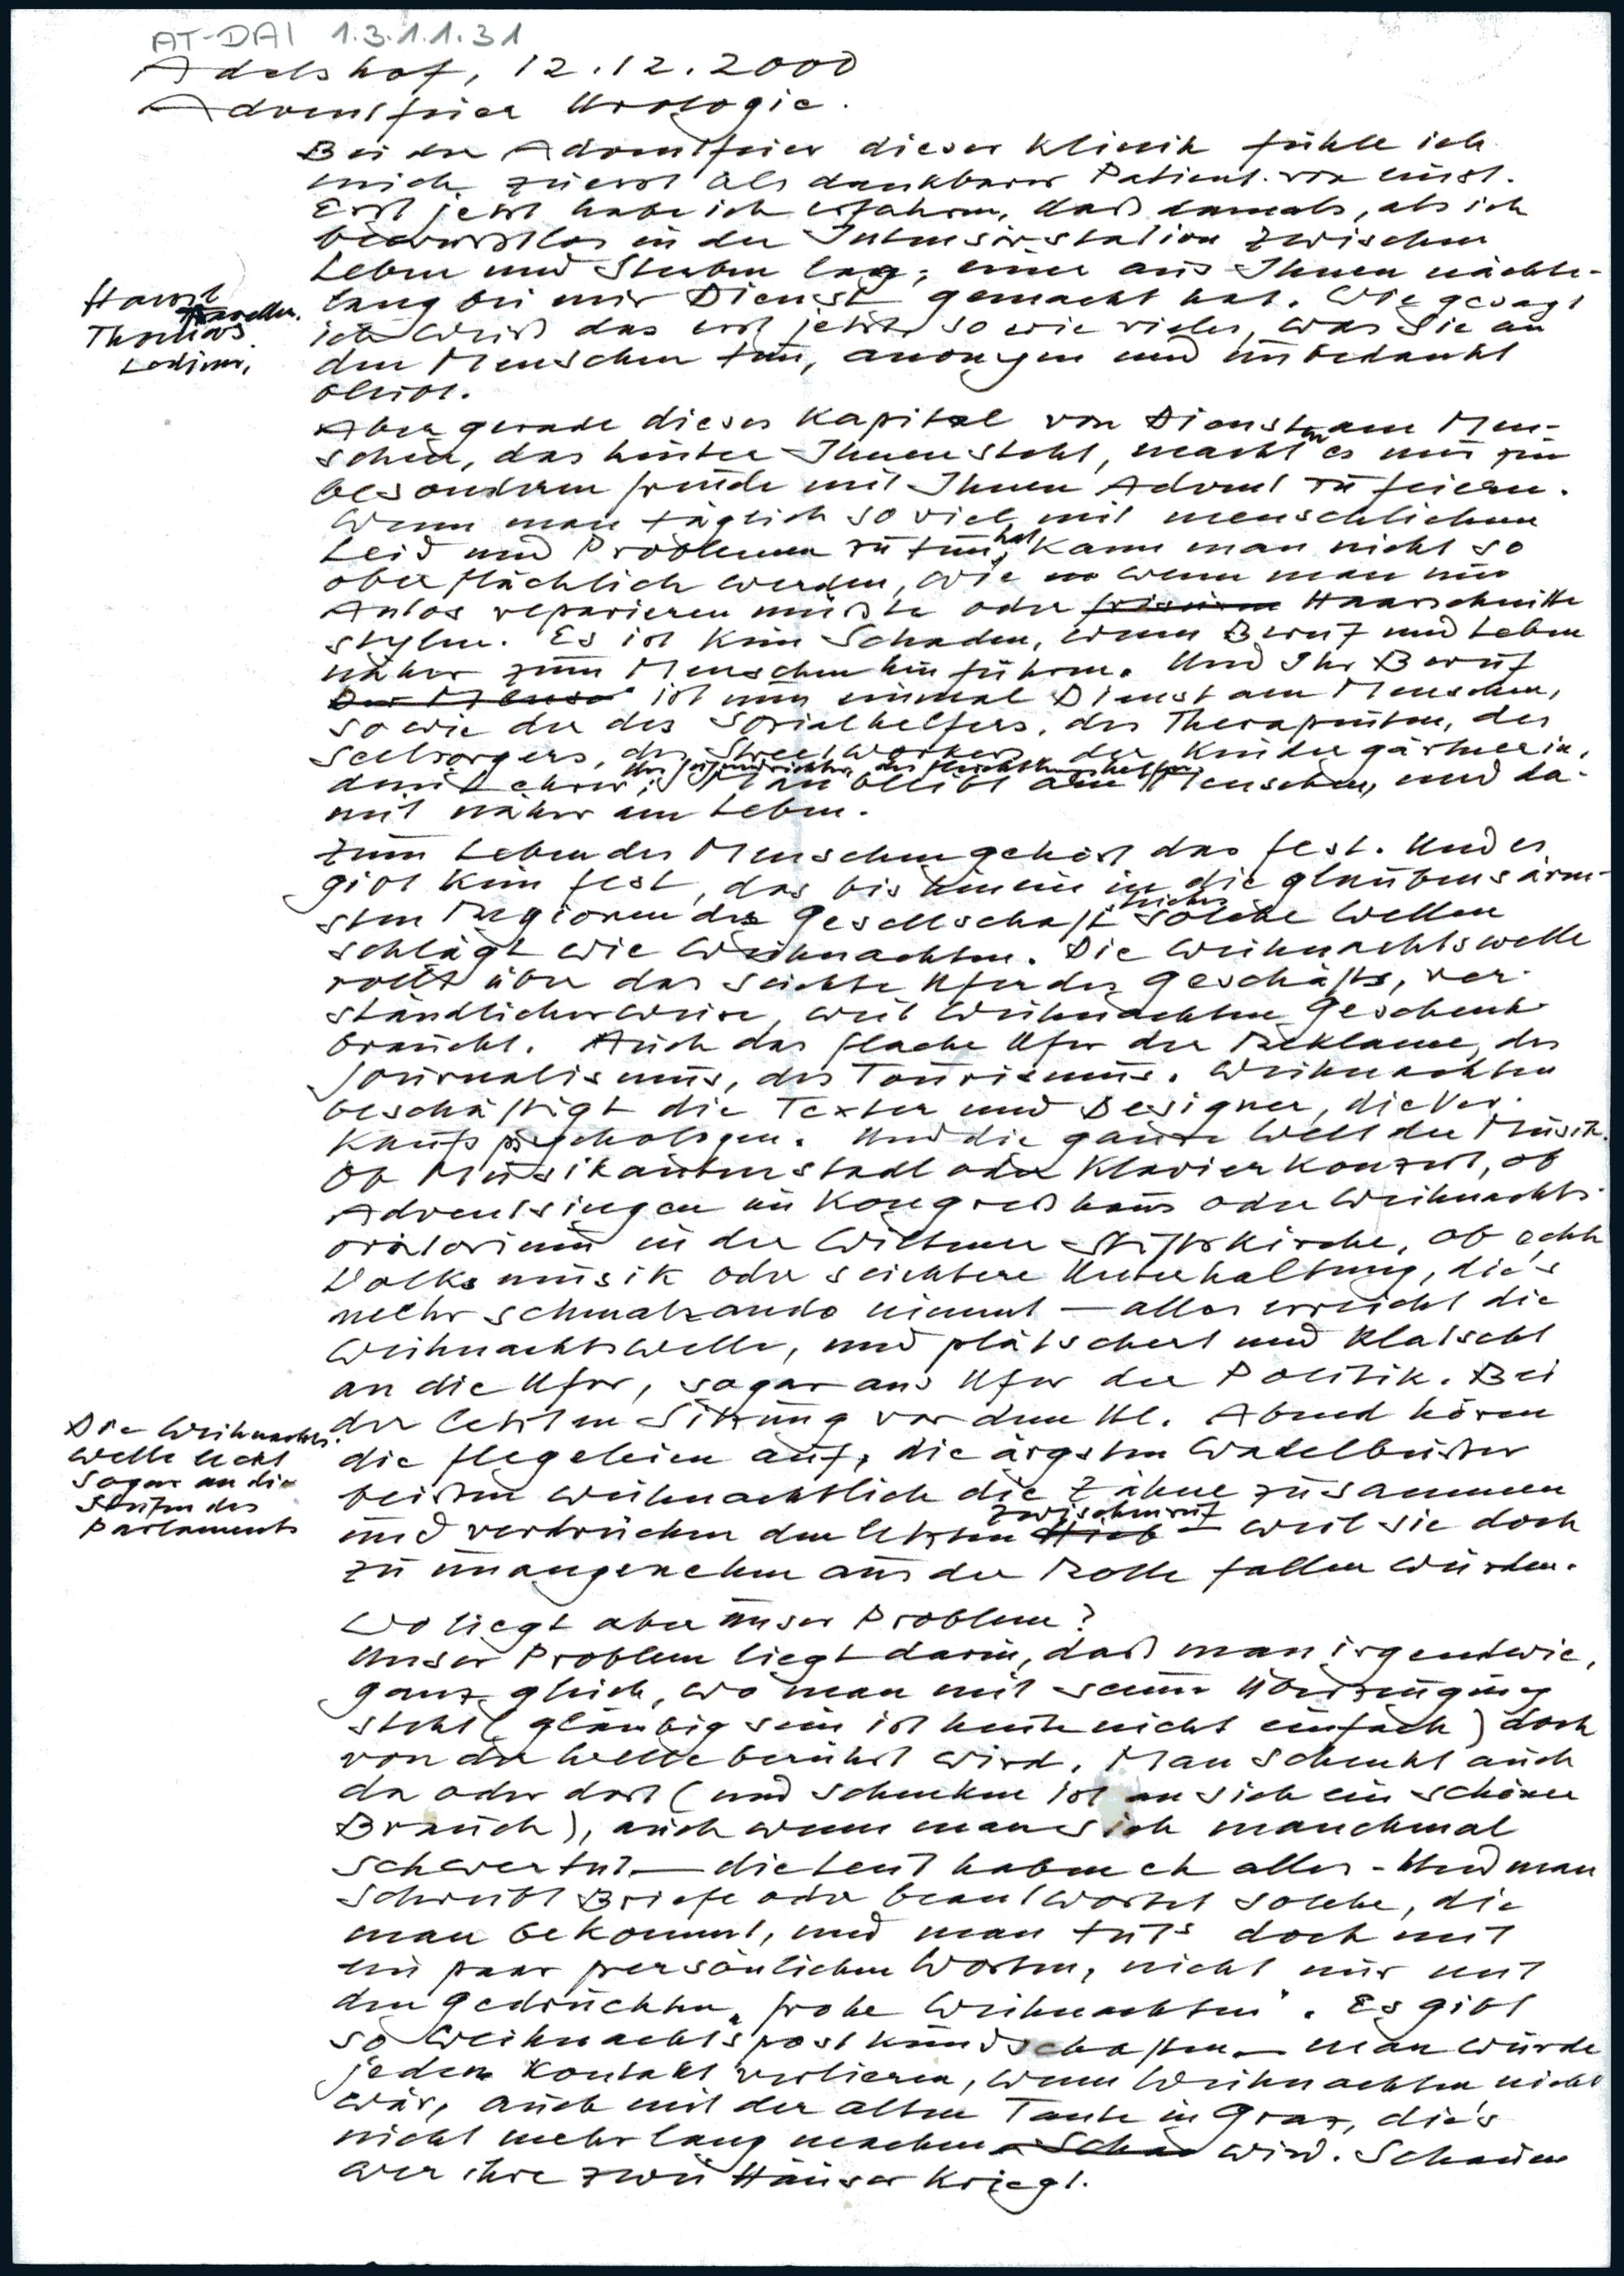 AT-DAI 1.3.1.1.31
Adelshof, 12.12.2000
Adventfeier Urologie.
Bei der Adventfeier dieser Klinik fühle ich
mich zuerst als dankbarer Patient von einst.
Erst jetzt habe ich erfahren, daß damals, als ich
bewusstlos in der Intensivstation zwischen
Leben und Sterben lag, einer aus Ihnen nächte-
lang bei mir Dienst gemacht hat. Wie gesagt
ich weiß das erst jetzt, so wie vieles, was Sie an
den Menschen tun, anonym und unbedankt
bleibt.
Thomas
Aber gerade dieses Kapital von Dienst am Men-
schen, das hinter Ihnen steht, macht es mir zur
besonderen Freude mit Ihnen Advent zu feiern.
Wenn man täglich so viel mit menschlichem
Leid und Problemen zu tun hat, kann man nicht so
oberflächlich werden, wie wenn man nur
Autos reparieren müßte oder frisieren Haarschnitte
stylen. Es ist kein Schaden, wenn Beruf und Leben
näher zum Menschen hinführen. Und Ihr Beruf
ist nun einmal Dienst am Menschen,
so wie der des Sozialhelfers, des Therapeuten, des
Seelsorgers, des Streetworkers, der Kindergärtnerin,
des Jugendrichters, des Flüchtlingshelfers
Man bleibt am Menschen, und da-
mit näher am Leben.
Zum Leben des Menschen gehört das Fest. Und es
gibt kein Fest, das bis hinein in die glaubensärm-
sten Regionen der Gesellschaft solche Wellen
schlägt wie Weihnachten. Die Weihnachtswelle
rollt über das seichte Ufer des Geschäfts, ver-
ständlicherweise, weil Weihnachten Geschenke
braucht. Auch das flache Ufer der Reklame, des
Journalismus, des Tourismus. Weihnachten
beschäftigt die Texter und Designer, die Ver-
kaufspsychologen. Und die ganze Welt der Musik.
Ob Musikantenstadl oder Klavierkonzert, ob
Adventsingen im Kongreßhaus oder Weihnachts-
oratorium in der Wiltener Stiftskirche, ob echte
Volksmusik oder seichtere Unterhaltung, die's
mehr schmalzando nimmt – alles erreicht die
Weihnachtswelle, und plätschert und klatscht
an die Ufer, sogar ans Ufer der Politik. Bei
der letzten Sitzung vor dem Hl. Abend hören
die Flegeleien auf, die ärgsten Wadelbeißer
beißen weihnachtlich die Zähne zusammen
und verdrücken den letzten Hieb Zwischenruf – weil sie doch
zu unangenehm aus der Rolle fallen würden.
Die Weihnachts-
welle leckt
sogar an die
Stufen des
Parlaments
Wo liegt aber unser Problem?
Unser Problem liegt darin, daß man irgendwie,
ganz gleich, wo man mit seiner Überzeugung
steht (gläubig sein ist heute nicht einfach) doch
von der Welle berührt wird. Man schenkt auch
da oder dort (und schenken ist an sich ein schöner
Brauch), auch wenn man sich manchmal
schwer tut – die Leut haben eh alles – Und man
schreibt Briefe oder beantwortet solche, die
man bekommt, und man tut's doch mit
ein paar persönlichen Worten, nicht nur mit
den gedruckten „frohe Weihnachten“. Es gibt
so Weihnachtspostkundschaften – man würde
jeden Kontakt verlieren, wenn Weihnachten nicht
wär, auch mit der alten Tante in Graz, die's
nicht mehr lang machen wird. Schauen
wer ihre zwei Häuser kriegt.